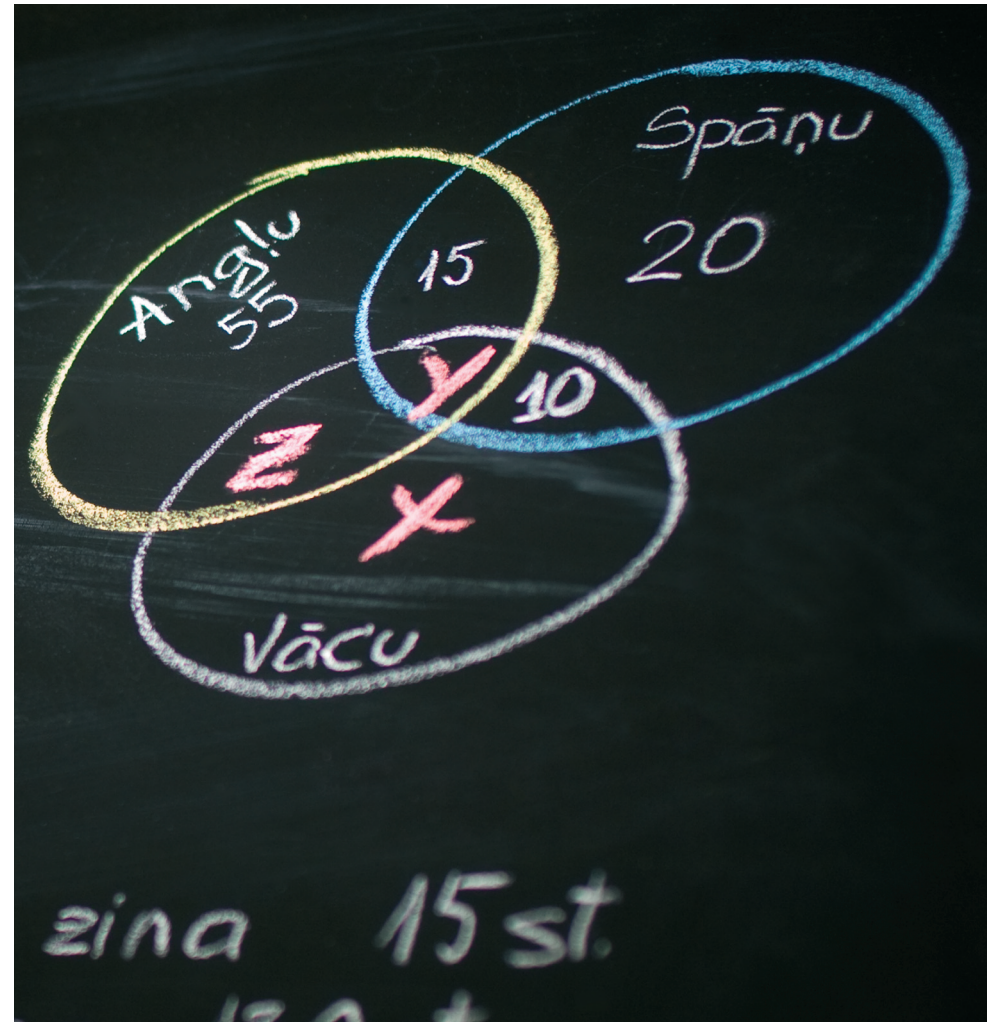 Spāņu
20
Angļu
55
15
Y
10
Z
X
Vācu
zina 15 st.